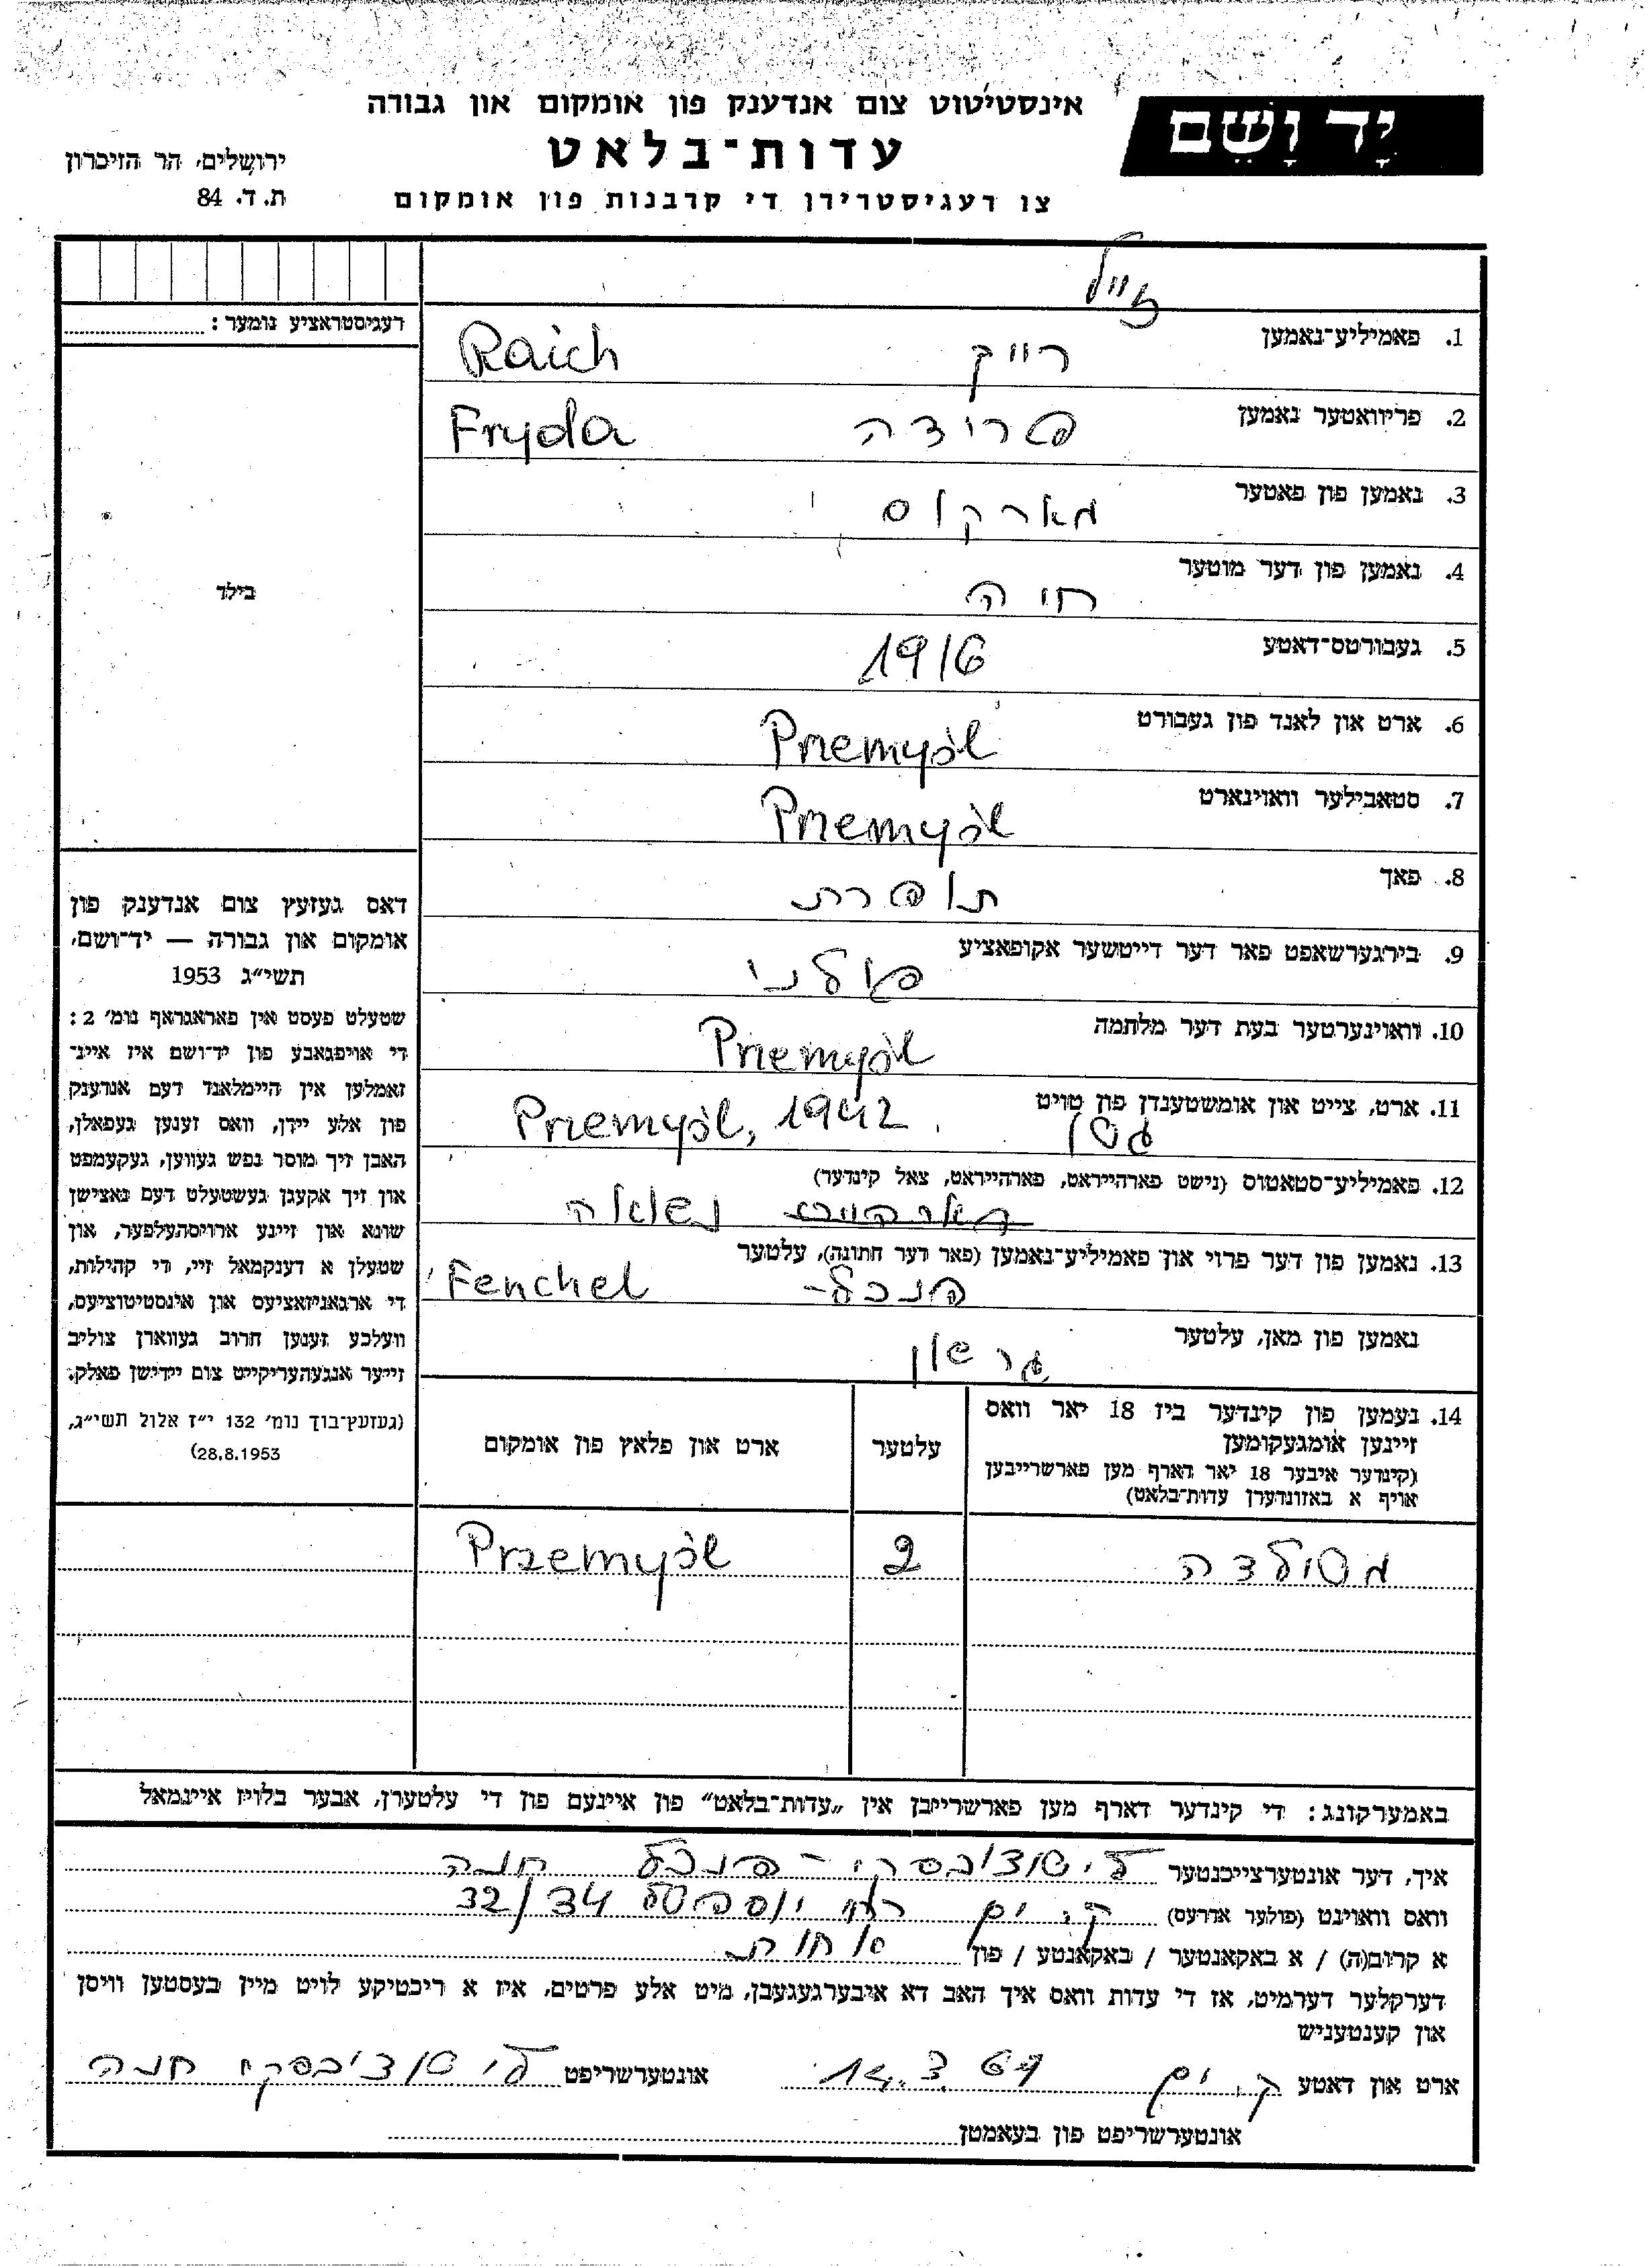 יָד וָשֵׁם
אינסטיטוט צום אנדענק פון אומקום און גבורה
עדות־בלאט
צו רעגיסטרירן די קרבנות פון אומקום
ירושלים, הר הזיכרון
ת. ד. 84
רעגיסטראציע נומער:
1. פאמיליע־נאמען רייך Raich
2. פריוואטער נאמען פרידה Fryda
3. נאמען פון פאטער מארקוס
4. נאמען פון דער מוטער חיה
5. געבורטס־דאטע 1916
6. ארט און לאנד פון געבורט Przemyśl
7. סטאבילער וואוינארט Przemyśl
8. פאך תופרת
9. בירגערשאפט פאר דער דייטשער אקופאציע פולני
10. וואוינערטער בעת דער מלחמה Przemyśl
11. ארט, צייט און אומשטענדן פון טויט גטו Przemyśl, 1942
12. פאמיליע־סטאטוס (נישט פארהייראט, פארהייראט, צאל קינדער)
נשואה
13. נאמען פון דער פרוי און פאמיליע־נאמען (פאר דער חתונה), עלטער
פנכל- Fenchel
נאמען פון מאן, עלטער
גרשון
בילד
דאס געזעץ צום אנדענק פון
אומקום און גבורה — יד־ושם,
תשי״ג 1953
שטעלט פעסט אין פאראגראף נומ׳ 2:
די אויפגאבע פון יד־ושם איז איינ־
זאמלען אין היימלאנד דעם אנדענק
פון אלע יידן, וואס זענען געפאלן,
האבן זיך מוסר נפש געווען, געקעמפט
און זיך אקעגן געשטעלט דעם נאצישן
שונא און זיינע ארויסהעלפער, און
שטעלן א דענקמאל זיי, די קהילות,
די ארגאניזאציעס און אינסטיטוציעס,
וועלכע זענען חרוב געווארן צוליב
זייער אנגעהעריקייט צום יידישן פאלק.
(געזעץ־בוך נומ׳ 132 י״ז אלול תשי״ג,
28.8.1953)
14. נעמען פון קינדער ביז 18 יאר וואס
זיינען אומגעקומען
(קינדער איבער 18 יאר דארף מען פארשרייבן
אויף א באזונדערן עדות־בלאט)
עלטער
ארט און פלאץ פון אומקום
מטילדה 2 Przemyśl
באמערקונג: די קינדער דארף מען פארשרייבן אין „עדות־בלאט״ פון איינעם פון די עלטערן, אבער בלויז איינמאל
איך, דער אונטערצייכנטער - פנכל חנה
וואס וואוינט (פולער אדרעס) ק. ים 32/34
א קרוב(ה) / א באקאנטער / באקאנטע / פון אחות
דערקלער דערמיט, אז די עדות וואס איך האב דא איבערגעגעבן, מיט אלע פרטים, איז א ריכטיקע לויט מיין בעסטען וויסן
און קענטעניש
ארט און דאטע ק. ים אונטערשריפט חנה
אונטערשריפט פון באאמטן